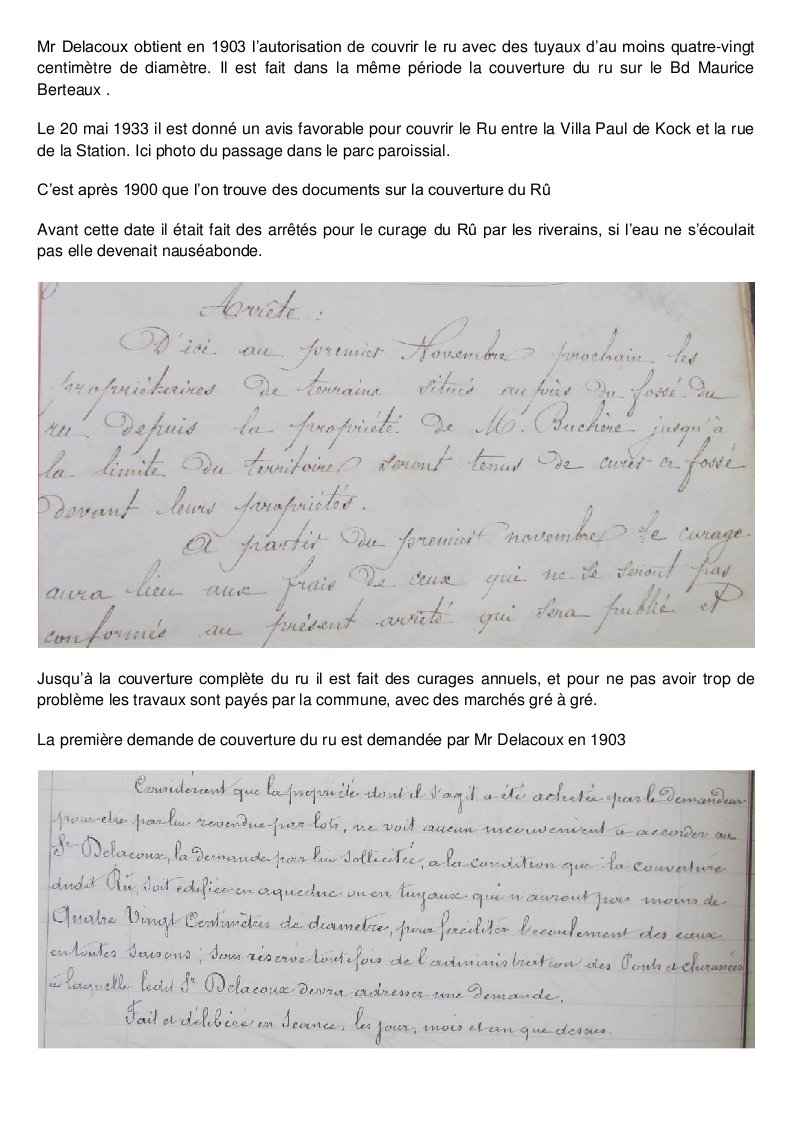 Mr Delacoux obtient en 1903 l'autorisation de couvrir le ru avec des tuyaux d'au moins quatre-vingt
centimètre de diamètre. Il est fait dans la même période la couverture du ru sur le Bd Maurice
Berteaux .
Le 20 mai 1933 il est donné un avis favorable pour couvrir le Ru entre la Villa Paul de Kock et la rue
de la Station. Ici photo du passage dans le parc paroissial.
C'est après 1900 que l'on trouve des documents sur la couverture du Rû
Avant cette date il était fait des arrêtés pour le curage du Rû par les riverains, si l'eau ne s'écoulait
pas elle devenait nauséabonde.
Arrête :
D'ici au premier Novembre prochain les
propriétaires de terrains situés auprès du fossé du
ru depuis la propriété de M. Buchère jusqu'à
la limite du territoire seront tenus de curer ce fossé
devant leurs propriétés.
A partir du premier novembre le curage
aura lieu aux frais de ceux qui ne se seront pas
conformés au présent arrêté qui sera publié et
Jusqu'à la couverture complète du ru il est fait des curages annuels, et pour ne pas avoir trop de
problème les travaux sont payés par la commune, avec des marchés gré à gré.
La première demande de couverture du ru est demandée par Mr Delacoux en 1903
Considérant que la propriété dont il s'agit a été achetée par le demandeur
pour être par lui revendue par lots, ne voit aucun inconvénient à accorder au
Sr Delacoux, la demande par lui sollicitée, a la condition que : la couverture
dudit Rû, soit édifiée en aqueduc ou en tuyaux qui n'auront pas moins de
Quatre Vingt Centimètres de diamètre, pour faciliter l'écoulement des eaux
en toutes saisons ; sous réserve toutefois de l'administration des Ponts et chaussées
à laquelle ledit Sr Delacoux devra adresser une demande.
Fait et délibéré en Séance, les jour, mois et an que dessus.